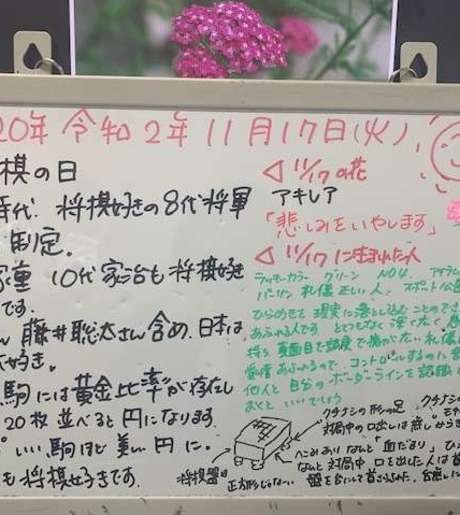 20年 令和2年 11月17日(火)
棋の日
時代、将棋好きの8代将軍
制定。
家重 10代家治も将棋好き
です。
ん 藤井聡太さん含め、日本は
好き。
駒には黄金比率が存在し
20枚並べると円になります。
いい駒ほど美しい円に。
も将棋好きです。
◁ 11/17の花
アキレア
「悲しみをいやします」
◁ 11/17に生まれた人
ラッキーカラー グリーン NO4.
礼儀正しい人、スポット公
ひらめきを現実に落とし込むことのでき
あふれる人です とてつもなく深く広く
持ち 真面目で頑固で揺がない 礼儀
愛情あふれるので、コントロールするのに
他人と自分のボーダーラインを認識し
おくと いいでしょう
クチナシの形の足
対局中の口出しは無し
へこみあり なんと「血だまり」
なんと対局中 口を出した人は首
盤を
将棋盤は
正方形じゃない